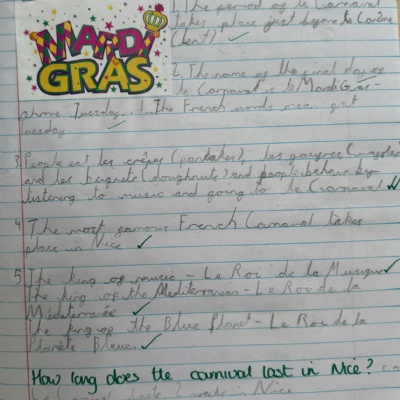 MARDI GRAS
1. The period of le Carnaval
takes place just before le Carême
(Lent)
2. The name of the final day of
le Carnaval is le Mardi Gras -
Tuesday... The French words mean fat
Tuesday
3. People eat les crêpes (pancakes), les gaugres, (waffles)
and les beignets (doughnuts) and people behave by
listening to music and going to le Carnaval
4 The most famous French Carnaval takes
place in Nice.
5. The king of music - Le Roi de la Musique
The king of the Mediterranean - Le Roi de la
Méditerranée
The king of the Blue Planet - Le Roi de la
Planète Bleue.
How long does the carnival last in Nice?
2 weeks in Nice